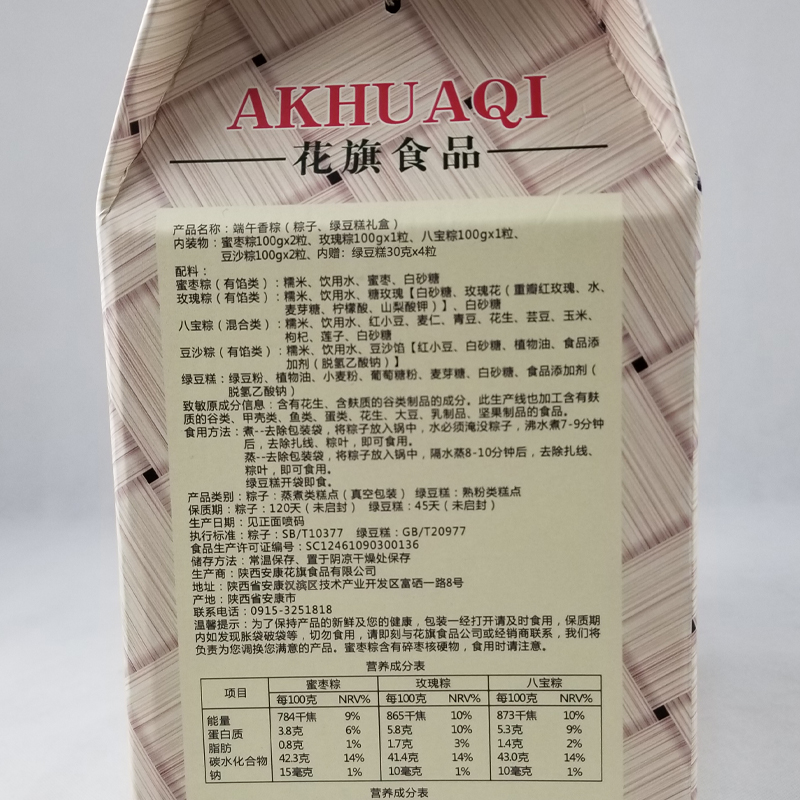 AKHUAQI
花旗食品
产品名称：端午香粽（粽子、绿豆糕礼盒）
内装物：蜜枣粽100gx2粒、玫瑰粽100gx1粒、八宝粽100gx1粒、
豆沙粽100gx2粒、内赠：绿豆糕30克x4粒
配料：
蜜枣粽（有馅类）：糯米、饮用水、蜜枣、白砂糖
玫瑰粽（有馅类）：糯米、饮用水、糖玫瑰【白砂糖、玫瑰花（重瓣红玫瑰、水、
麦芽糖、柠檬酸、山梨酸钾）】、白砂糖
八宝粽（混合类）：糯米、饮用水、红小豆、麦仁、青豆、花生、芸豆、玉米、
枸杞、莲子、白砂糖
豆沙粽（有馅类）：糯米、饮用水、豆沙馅【红小豆、白砂糖、植物油、食品添
加剂（脱氢乙酸钠）】
绿豆糕：绿豆粉、植物油、小麦粉、葡萄糖粉、麦芽糖、白砂糖、食品添加剂（
脱氢乙酸钠）
致敏原成分信息：含有花生、含麸质的谷类制品的成分。此生产线也加工含有麸
质的谷类、甲壳类、鱼类、蛋类、花生、大豆、乳制品、坚果制品的食品。
食用方法：煮--去除包装袋，将粽子放入锅中，水必须淹没粽子，沸水煮7-9分钟
后，去除扎线、粽叶，即可食用。
蒸--去除包装袋，将粽子放入锅中，隔水蒸8-10分钟后，去除扎线、
粽叶，即可食用。
绿豆糕开袋即食。
产品类别：粽子：蒸煮类糕点（真空包装） 绿豆糕：熟粉类糕点
保质期：粽子：120天（未启封） 绿豆糕：45天（未启封）
生产日期：见正面喷码
执行标准：粽子：SB/T10377 绿豆糕：GB/T20977
食品生产许可证编号：SC12461090300136
储存方法：常温保存、置于阴凉干燥处保存
生产商：陕西安康花旗食品有限公司
地址：陕西省安康汉滨区技术产业开发区富硒一路8号
产地：陕西省安康市
联系电话：0915-3251818
温馨提示：为了保持产品的新鲜及您的健康，包装一经打开请及时食用，保质期
内如发现胀袋破袋等，切勿食用，请即刻与花旗食品公司或经销商联系，我们将
负责为您调换您满意的产品。蜜枣粽含有碎枣核硬物，食用时请注意。
营养成分表
项目 蜜枣粽 玫瑰粽 八宝粽
每100克 NRV% 每100克 NRV% 每100克 NRV%
能量 784千焦 9% 865千焦 10% 873千焦 10%
蛋白质 3.8克 6% 5.8克 10% 5.3克 9%
脂肪 0.8克 1% 1.7克 3% 1.4克 2%
碳水化合物 42.3克 14% 41.4克 14% 43.0克 14%
钠 15毫克 1% 10毫克 1% 10毫克 1%
营养成分表